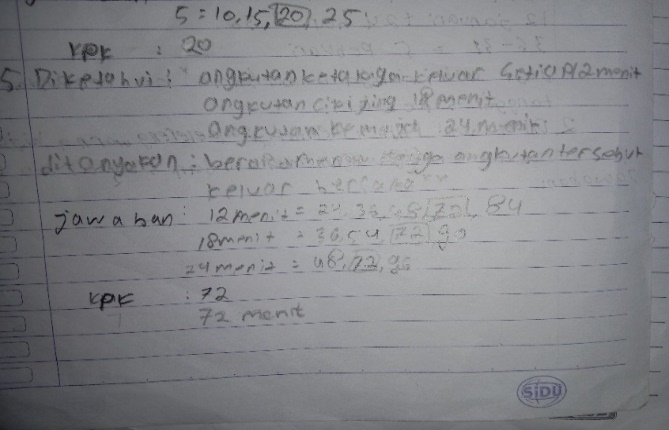 5 = 10, 15, 20, 25
KPK : 20
5. Diketahui : angkutan keluar setiap 12 menit
angkutan 18 menit
angkutan 24 menit
ditanyakan : angkutan tersebut
keluar bersama
jawaban : 12 menit = 24, 36, 48, 72, 84
18 menit = 36, 54, 72, 90
24 menit = 48, 72, 96
KPK : 72
72 menit
SiDU